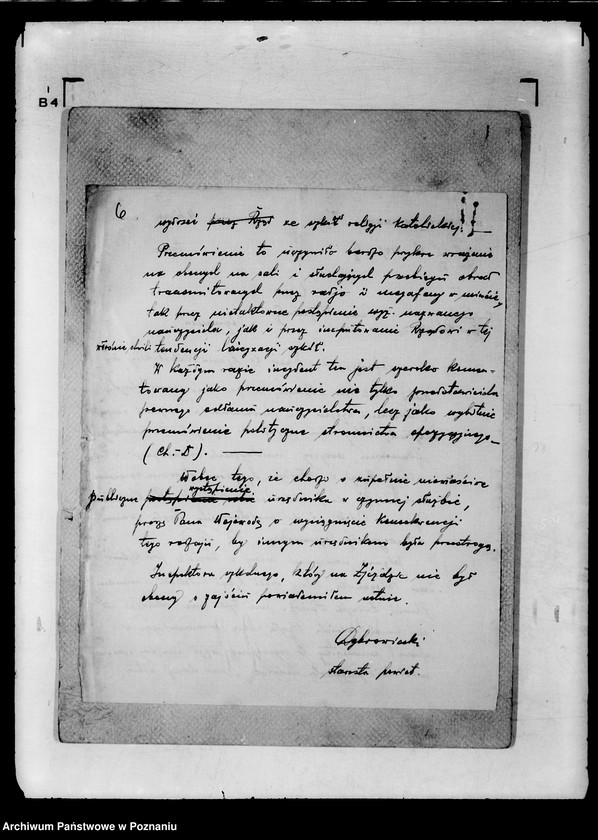 B4
6
wyrzec przez Rząd ze szkół religji Katolickiej.
Przemówienie to uczyniło bardzo przykre wrażenie
na obecnych na sali i słuchających przebiegu obrad
transmitowanych przez radjo i megafony w mieście,
tak przez nietaktowne postąpienie wyż. nazwanego
nauczyciela, jak i przez imputowanie Rządowi w tej
właśnie chwili tendencji laicyzacji szkół.
W każdym razie incydent ten jest szeroko komen-
towany jako przemówienie nie tylko przedstawiciela
pewnego odłamu nauczycielstwa, lecz jako wybitnie
przemówienie polityczne stronnictwa opozycyjnego
(Ch.-D).
Wobec tego, że chodzi o zupełnie niewłaściwe
wystąpienie
publiczne urzędnika w czynnej służbie,
proszę Pana Wojewodę o wyciągnięcie konsekwencji
tego rodzaju, by innym urzędnikom była przestrogą.
Inspektora szkolnego, który na Zjeździe nie był
obecny o zajściu powiadomiłem ustnie.
starosta powiat.
Archiwum Państwowe w Poznaniu